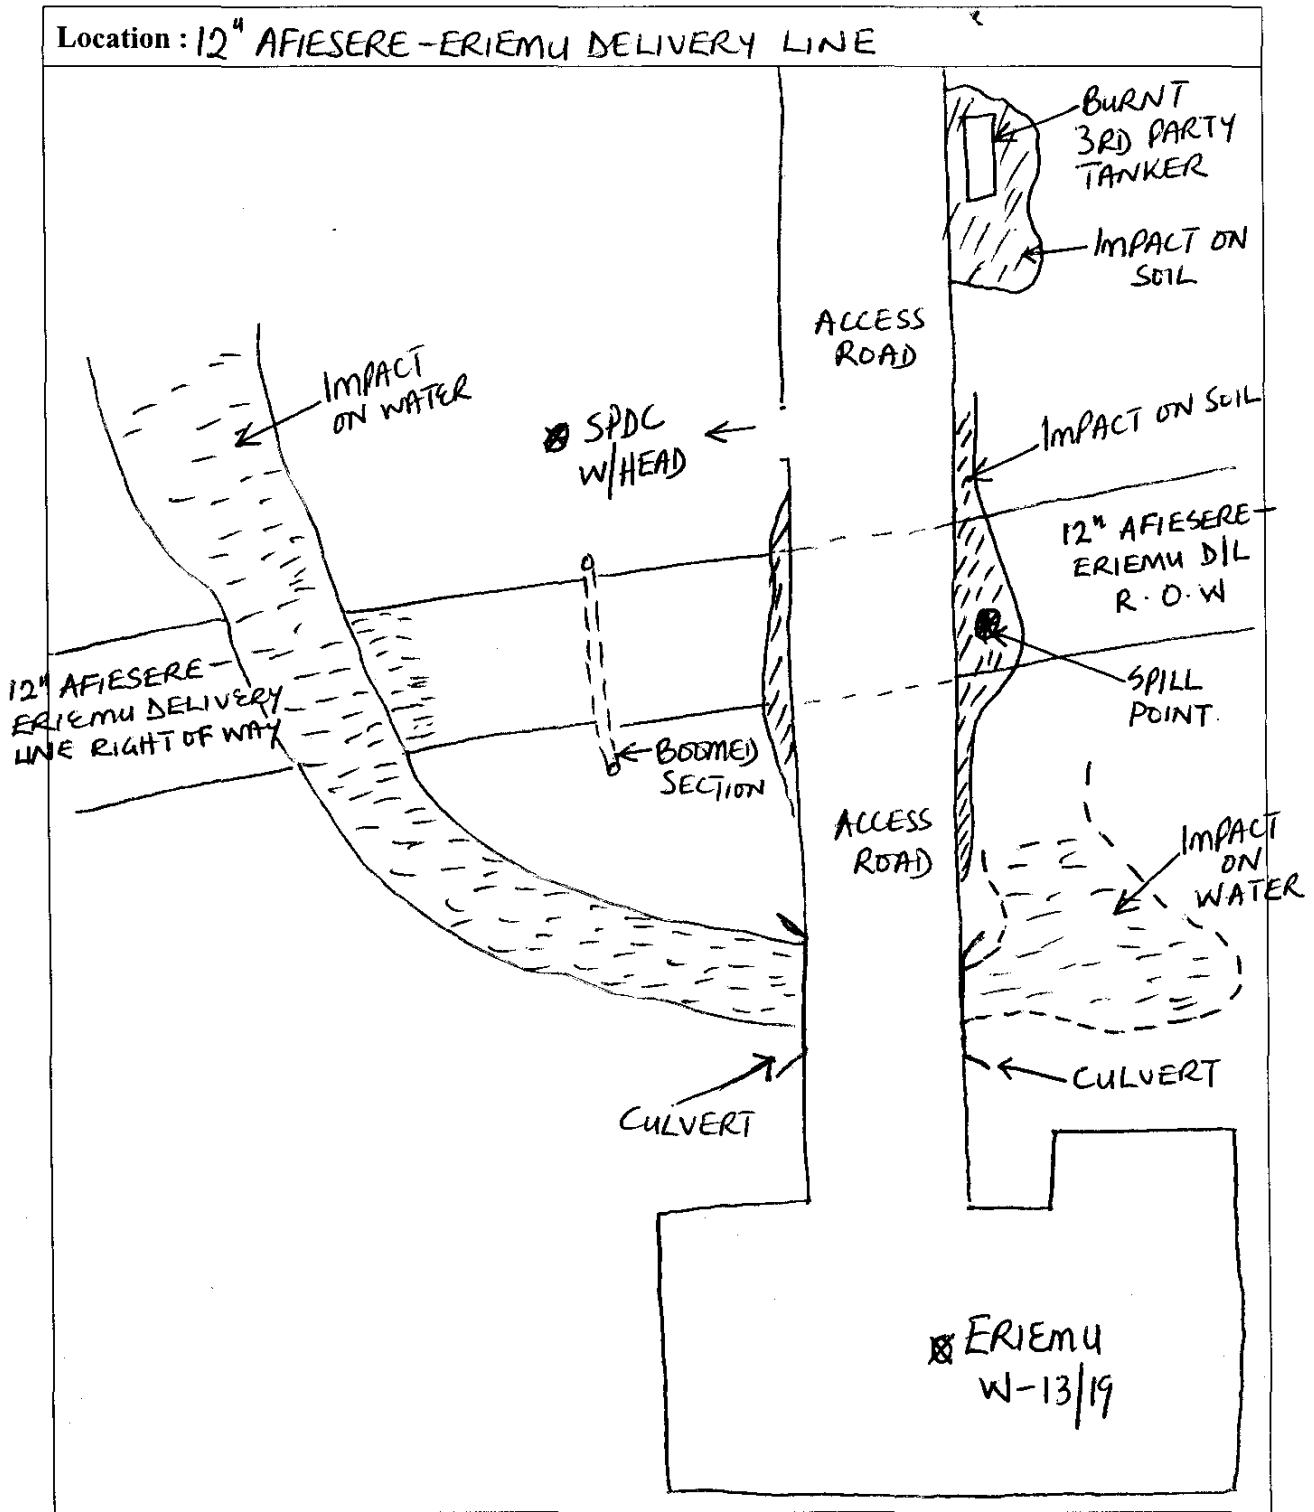 Location : 12" AFIESERE-ERIEMU DELIVERY LINE
BURNT
3RD PARTY
TANKER
IMPACT ON
SOIL
ACCESS
ROAD
IMPACT
ON WATER
SPDC
W/HEAD
IMPACT ON SOIL
12" AFIESERE-
ERIEMU D/L
R.O.W
12" AFIESERE-
ERIEMU DELIVERY
LINE RIGHT OF WAY
SPILL
POINT.
BOOMED
SECTION
ACCESS
ROAD
IMPACT
ON
WATER
CULVERT
CULVERT
ERIEMU
W-13/19